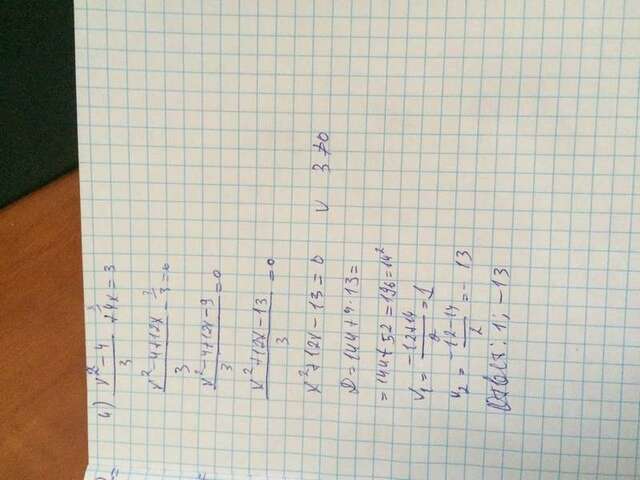 4) (x² - 4)/3 + 4x = 3
(x² - 4 + 12x)/3 - 3 = 0
(x² - 4 + 12x - 9)/3 = 0
(x² + 12x - 13)/3 = 0
x² + 12x - 13 = 0 v 3 ≠ 0
D = 144 + 4 · 13 =
= 144 + 52 = 196 = 14²
x₁ = (-12 + 14)/2 = 1
x₂ = (-12 - 14)/2 = -13
Ответ: 1; -13